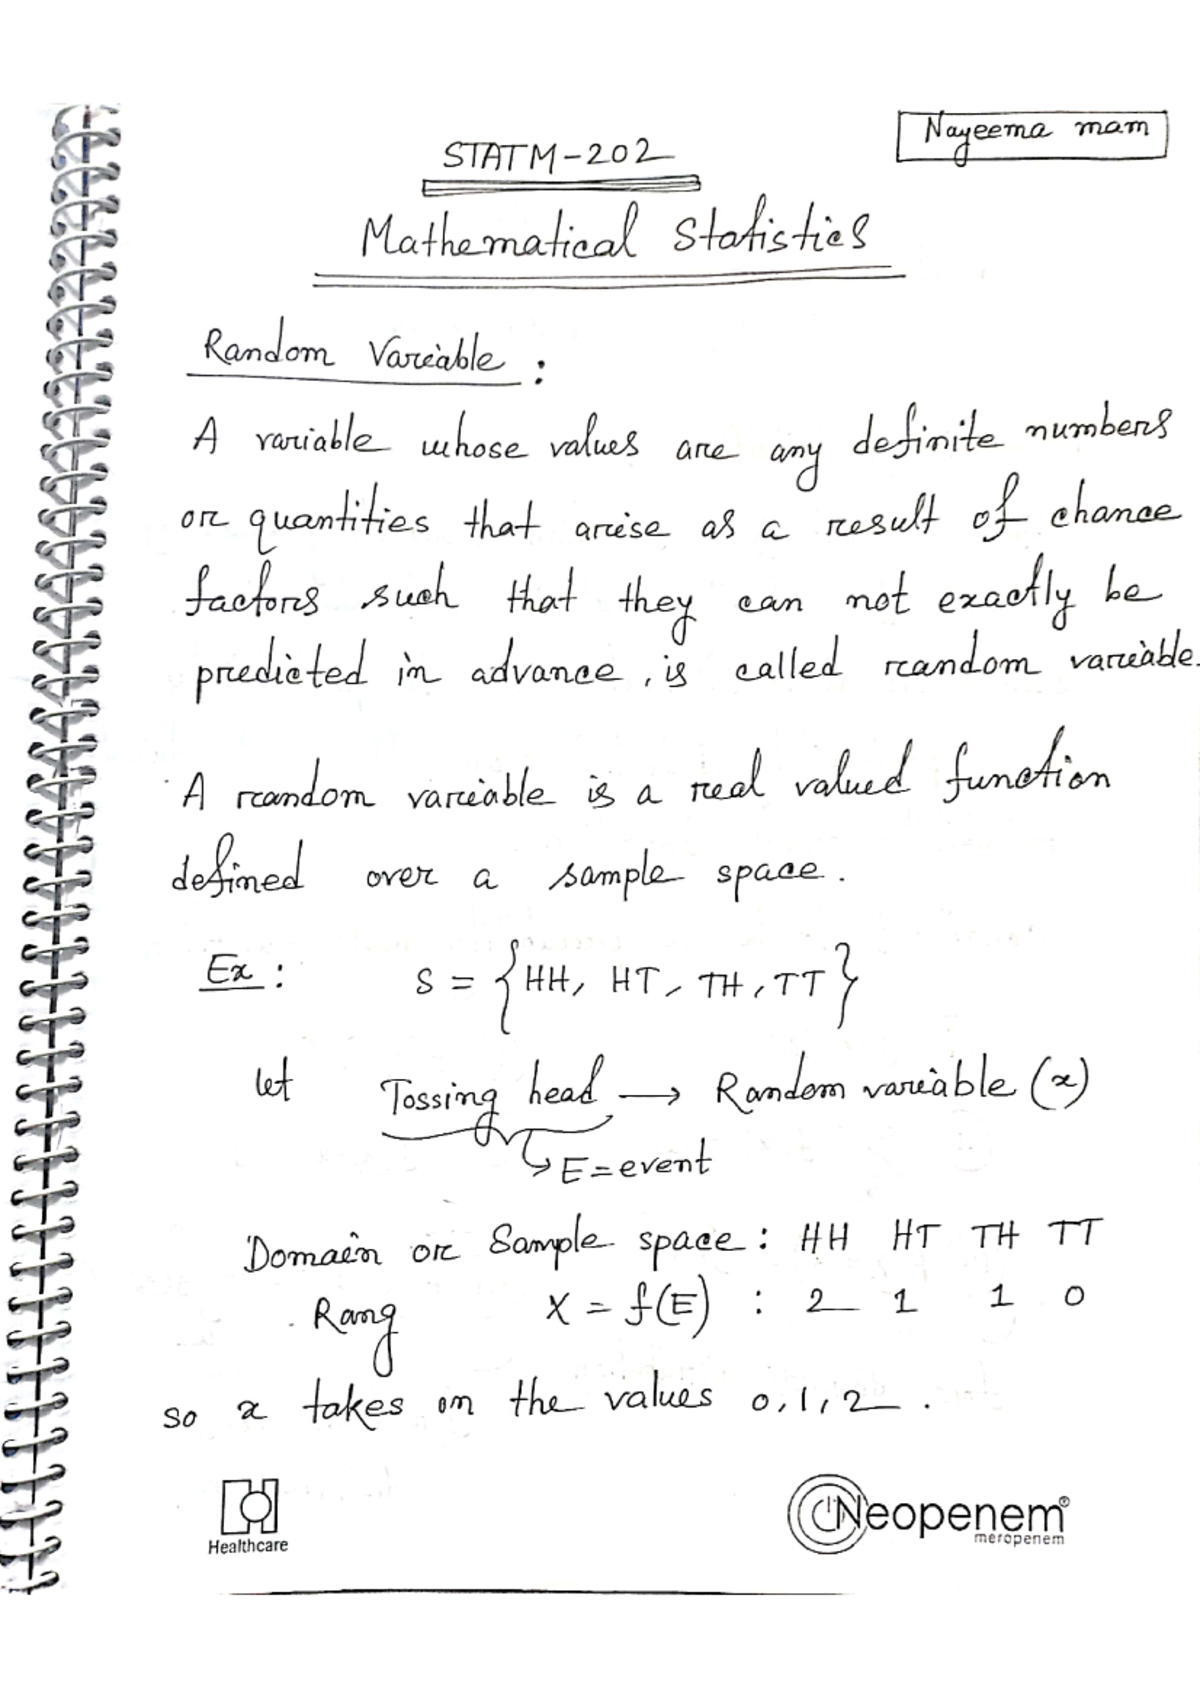 Nayeema mam
STATM-202
Mathematical Statistics
Random Variable :
A variable whose values are any definite numbers
or quantities that arise as a result of chance
factors such that they can not exactly be
predicted in advance, is called random variable.
A random variable is a real valued function
defined over a sample space.
Ex : S = {HH, HT, TH, TT}
let Tossing head → Random variable (x)
↳ E = event
Domain or Sample space : HH HT TH TT
Rang X = f(E) : 2 1 1 0
so x takes on the values 0, 1, 2.
Healthcare
Neopenem®
meropenem